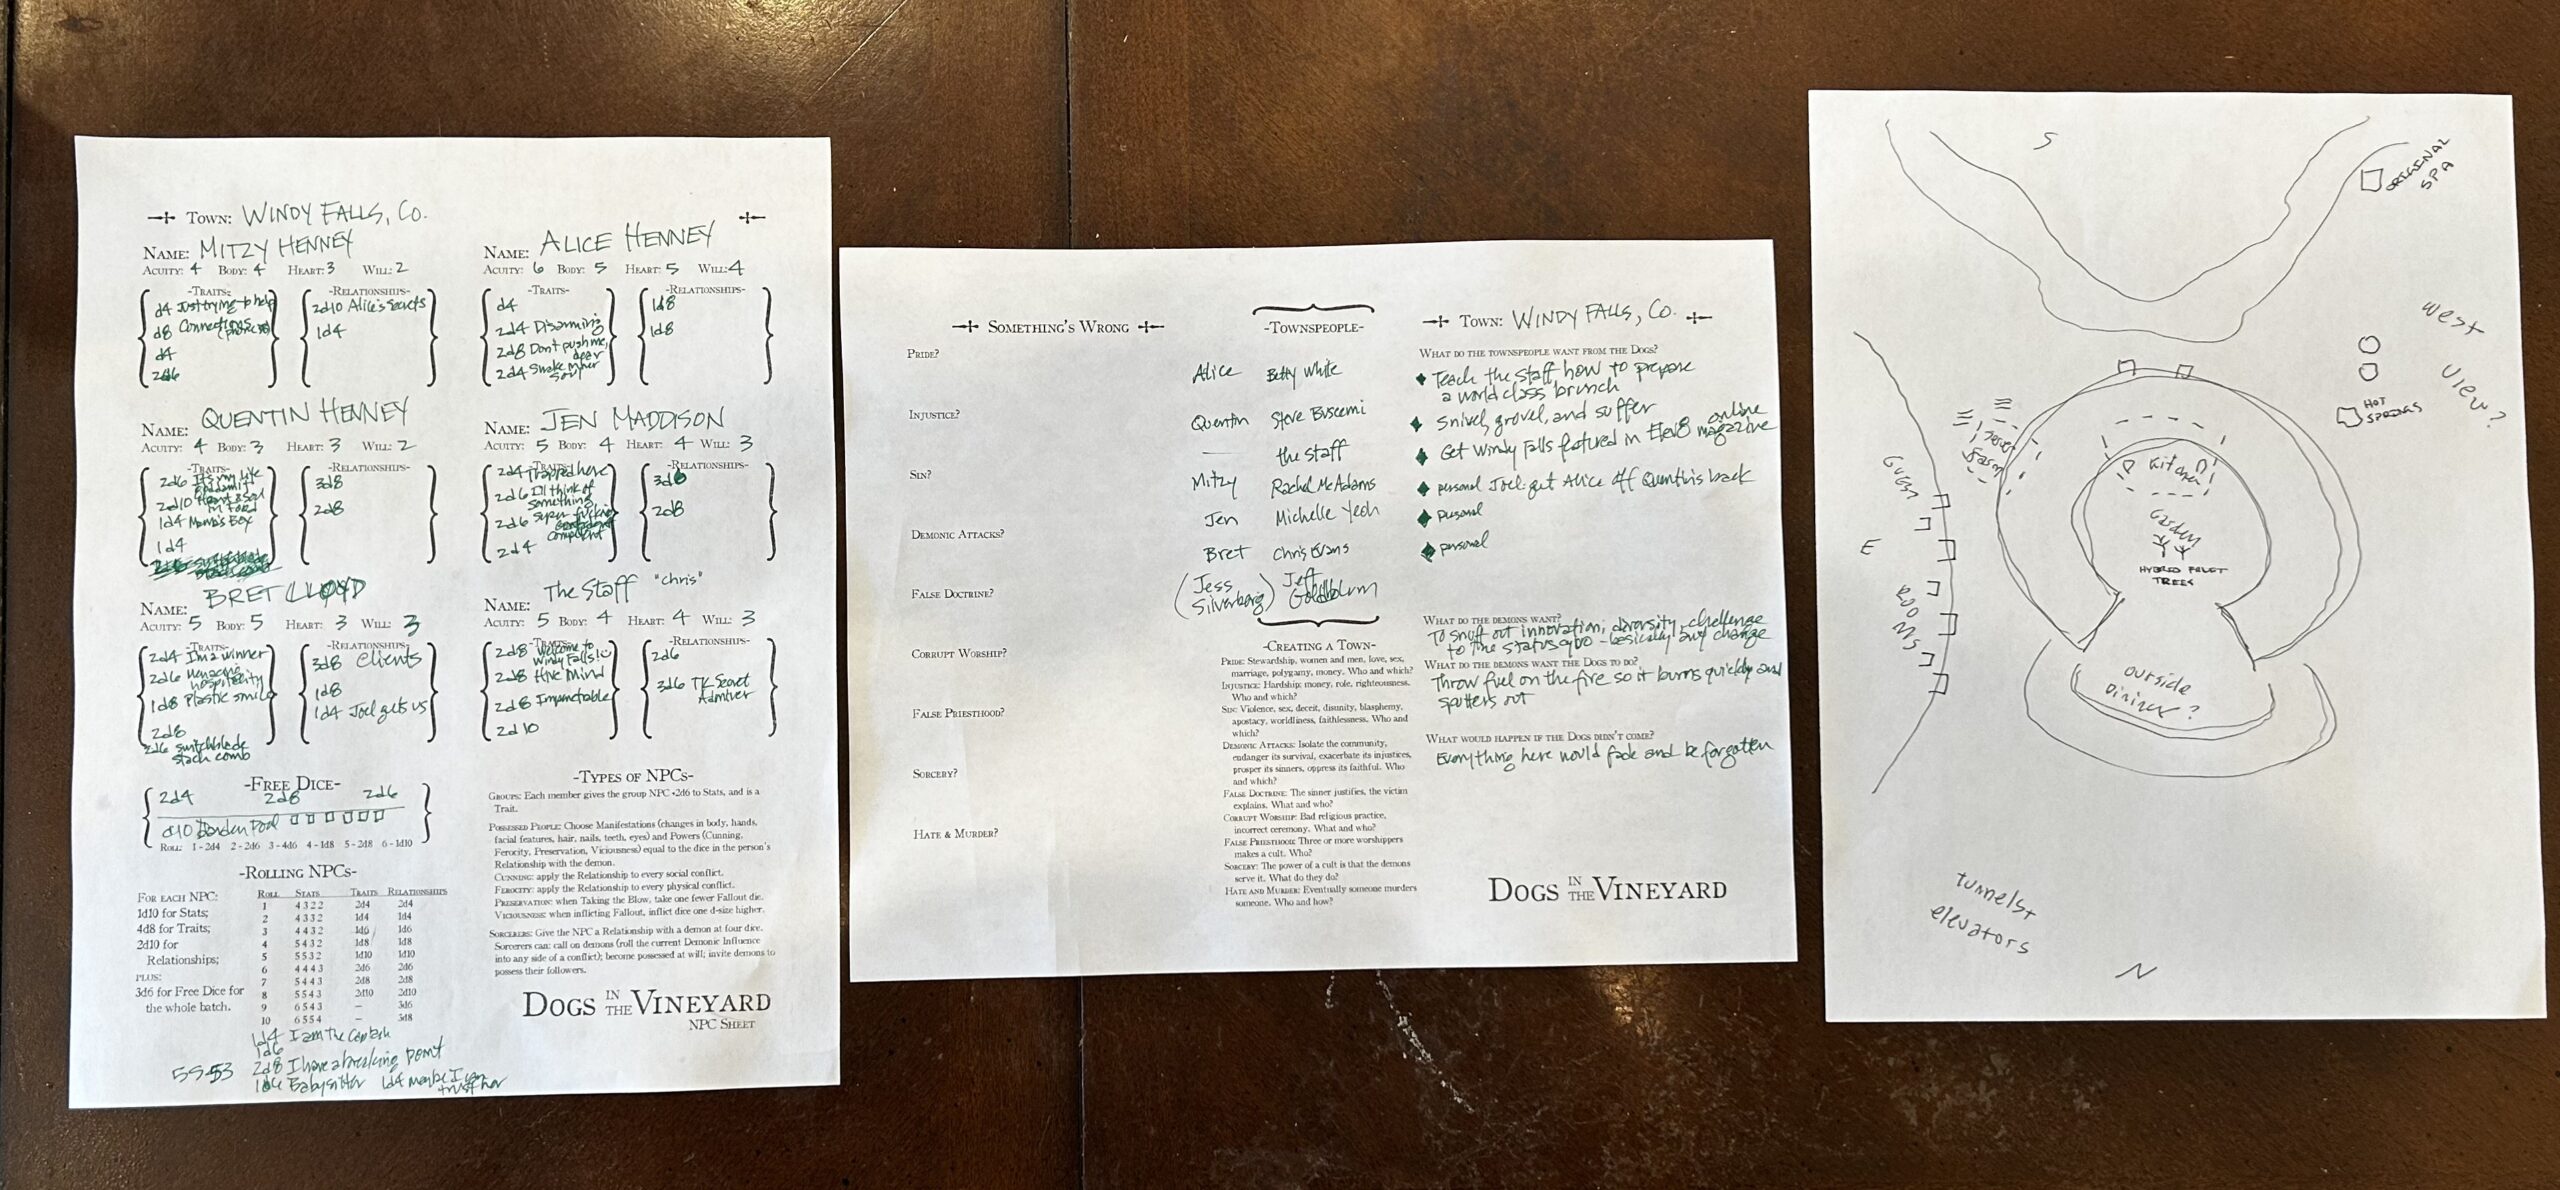 Town: WINDY FALLS, CO.
Name: MITZY HENNEY
Acuity: 4 Body: 4 Heart: 3 Will: 2
-Traits-
d4 Just trying to help
d8 Connections
d4
2d6
-Relationships-
2d10 Alice's secrets
1d4
Name: ALICE HENNEY
Acuity: 6 Body: 5 Heart: 5 Will: 4
-Traits-
d4
2d4 Disarming
2d8 Don't push me,
dear
2d4
-Relationships-
1d8
1d8
Name: QUENTIN HENNEY
Acuity: 4 Body: 3 Heart: 3 Will: 2
-Traits-
2d6 It's my life
goddamit
2d10 Heart & Soul
in Food
1d4 Mama's Boy
1d4
-Relationships-
3d8
2d8
Name: JEN MADDISON
Acuity: 5 Body: 4 Heart: 4 Will: 3
-Traits-
2d4 Trapped here
2d6 I'll think of
something
2d6 super fucking
competent
2d4
-Relationships-
3d6
2d8
Name: BRET LLOYD
Acuity: 5 Body: 5 Heart: 3 Will: 3
-Traits-
2d4 I'm a winner
2d6 Menacing
hospitality
1d8 Plastic smile
2d8
2d6 switchblade
stach comb
-Relationships-
3d8 clients
1d8
1d4 Joel gets us
Name: The Staff "chris"
Acuity: 5 Body: 4 Heart: 4 Will: 3
-Traits-
2d8 Welcome to
Windy Falls!
2d8 Hive Mind
2d8 Impenetrable
2d10
-Relationships-
2d6
3d6 TK Secret
Admirer
-Free Dice-
2d4 2d8 2d6
d10 Burden Pool
Roll: 1 - 2d4 2 - 2d6 3 - 4d6 4 - 1d8 5 - 2d8 6 - 1d10
-Rolling NPCs-
For each NPC:
1d10 for Stats;
4d8 for Traits;
2d10 for
Relationships;
plus:
3d6 for Free Dice for
the whole batch.
Roll Stats Traits Relationships
1 4322 2d4 2d4
2 4332 1d4 1d4
3 4432 1d6 1d6
4 5432 1d8 1d8
5 5532 1d10 1d10
6 4443 2d6 2d6
7 5443 2d8 2d8
8 5543 2d10 2d10
9 6543 – 3d6
10 6554 – 3d8
1d4 I am the
1d6
2d8 I have a breaking point
1d6 Babysitter 1d4 maybe I can
trust her
5553
-Types of NPCs-
Groups: Each member gives the group NPC +2d6 to Stats, and is a
Trait.
Possessed People: Choose Manifestations (changes in body, hands,
facial features, hair, nails, teeth, eyes) and Powers (Cunning,
Ferocity, Preservation, Viciousness) equal to the dice in the person's
Relationship with the demon.
Cunning: apply the Relationship to every social conflict.
Ferocity: apply the Relationship to every physical conflict.
Preservation: when Taking the Blow, take one fewer Fallout die.
Viciousness: when inflicting Fallout, inflict dice one d-size higher.
Sorcerers: Give the NPC a Relationship with a demon at four dice.
Sorcerers can: call on demons (roll the current Demonic Influence
into any side of a conflict); become possessed at will; invite demons to
possess their followers.
Dogs in the Vineyard
NPC Sheet
Something's Wrong
Pride?
Injustice?
Sin?
Demonic Attacks?
False Doctrine?
Corrupt Worship?
False Priesthood?
Sorcery?
Hate & Murder?
-Townspeople-
Alice Betty White
Quentin Steve Buscemi
the staff
Mitzy Rachel McAdams
Jen Michelle Yeoh
Bret Chris Evans
(Jess Silverberg) Jeff Goldblum
-Creating a Town-
Pride: Stewardship, women and men, love, sex,
marriage, polygamy, money. Who and which?
Injustice: Hardship: money, role, righteousness.
Who and which?
Sin: Violence, sex, deceit, disunity, blasphemy,
apostacy, worldliness, faithlessness. Who and
which?
Demonic Attacks: Isolate the community,
endanger its survival, exacerbate its injustices,
prosper its sinners, oppress its faithful. Who
and which?
False Doctrine: The sinner justifies, the victim
explains. What and who?
Corrupt Worship: Bad religious practice,
incorrect ceremony. What and who?
False Priesthood: Three or more worshippers
makes a cult. Who?
Sorcery: The power of a cult is that the demons
serve it. What do they do?
Hate and Murder: Eventually someone murders
someone. Who and how?
Town: WINDY FALLS, CO.
What do the townspeople want from the Dogs?
Teach the staff how to prepare
a world class brunch
Snivel, grovel, and suffer
Get Windy Falls featured in Elev8 online magazine
personal Joel: get Alice off Quentin's back
personal
personal
What do the demons want?
To snuff out innovation, diversity, challenge
to the status quo - basically any change
What do the demons want the Dogs to do?
Throw fuel on the fire so it burns quickly and
sputters out
What would happen if the Dogs didn't come?
Everything here would fade and be forgotten
Dogs in the Vineyard
S
ORIGINAL
SPA
West
View?
HOT
SPRINGS
Server
farm
Kitchen
Garden
HYBRID FRUIT
TREES
GUEST
ROOMS
E
outside
Dining?
tunnels +
elevators
N